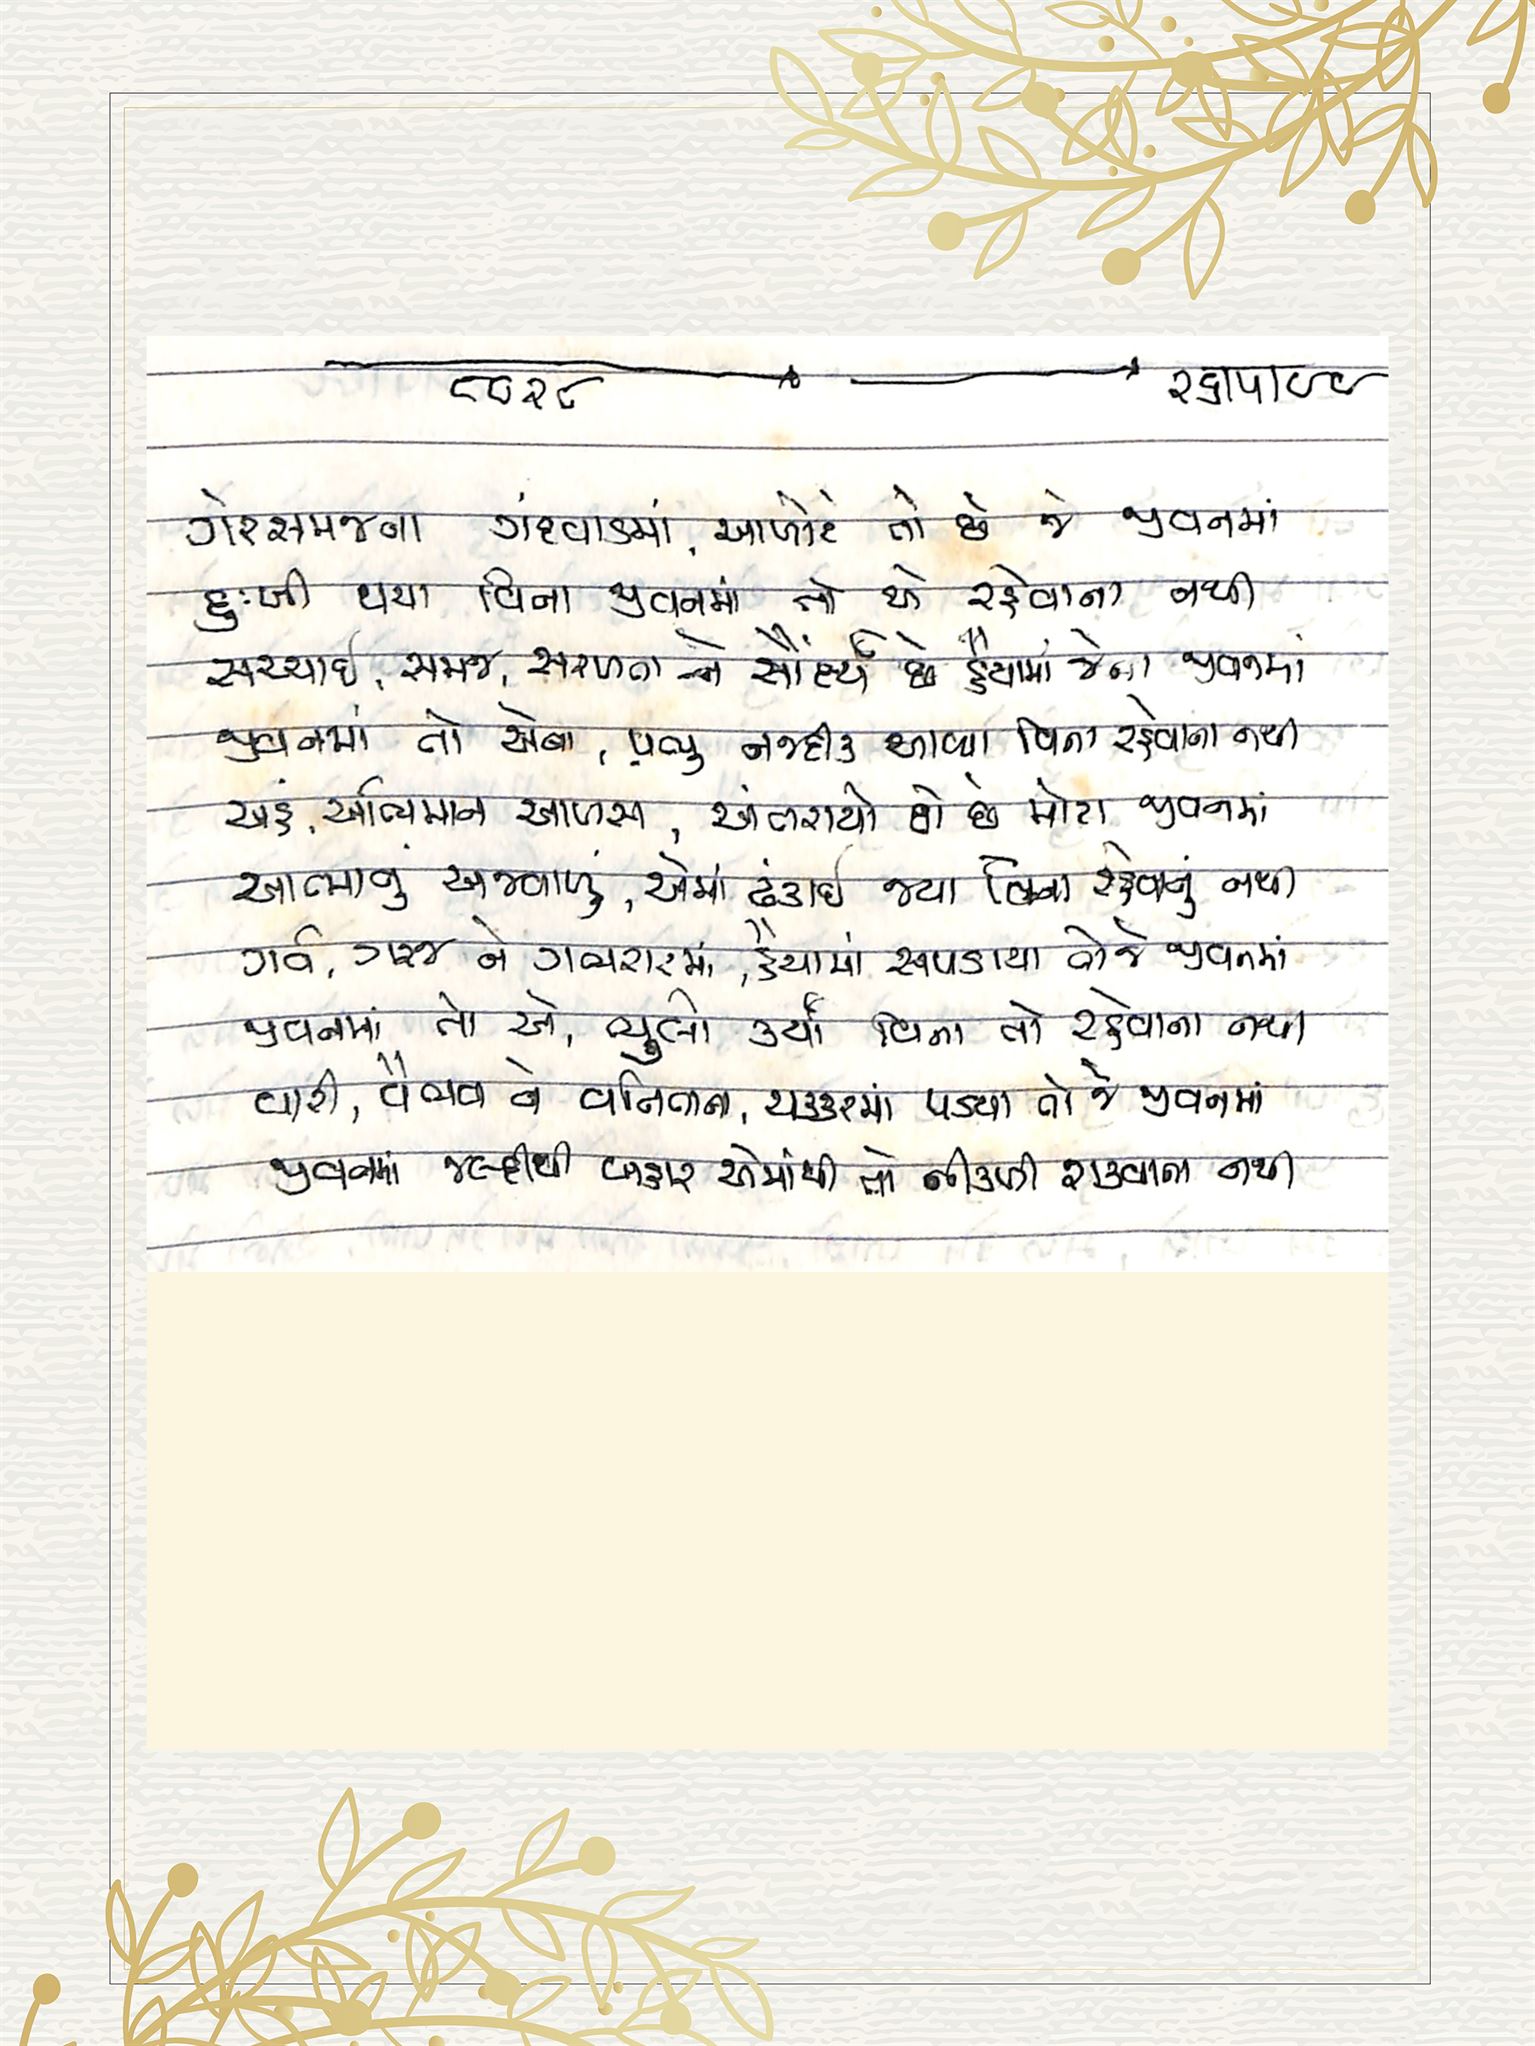 ૮૦૨૮ ૨૭।૫।૯૯
ગેરસમજના ગંદવાડમાં, આળોટે તો છે જે જીવનમાં
દુઃખી થયા વિના જીવનમાં તો એ રહેવાના નથી
સચ્ચાઈ, સમજ, સરળતા ને સૌંદર્ય છે હૈયામાં જેના જીવનમાં
જીવનમાં તો એવા, પ્રભુ નજદીક આવ્યા વિના રહેવાના નથી
અહં, અભિમાન આળસ, અંતરાયો તો છે મોટા જીવનમાં
આત્માનું અજવાળું, એમાં ઢંકાઈ જયા વિના રહેવાનું નથી
ગર્વ, ગરજ ને ગભરાટમાં, હૈયામાં સપડાયા તો જે જીવનમાં
જીવનમાં તો એ, ભૂલો કર્યા વિના તો રહેવાના નથી
વૈભવ ને વનિતાના, ચક્કરમાં પડયા તો જે જીવનમાં
જીવનમાં જલ્દીથી બહાર એમાંથી તો નીકળી શકવાના નથી